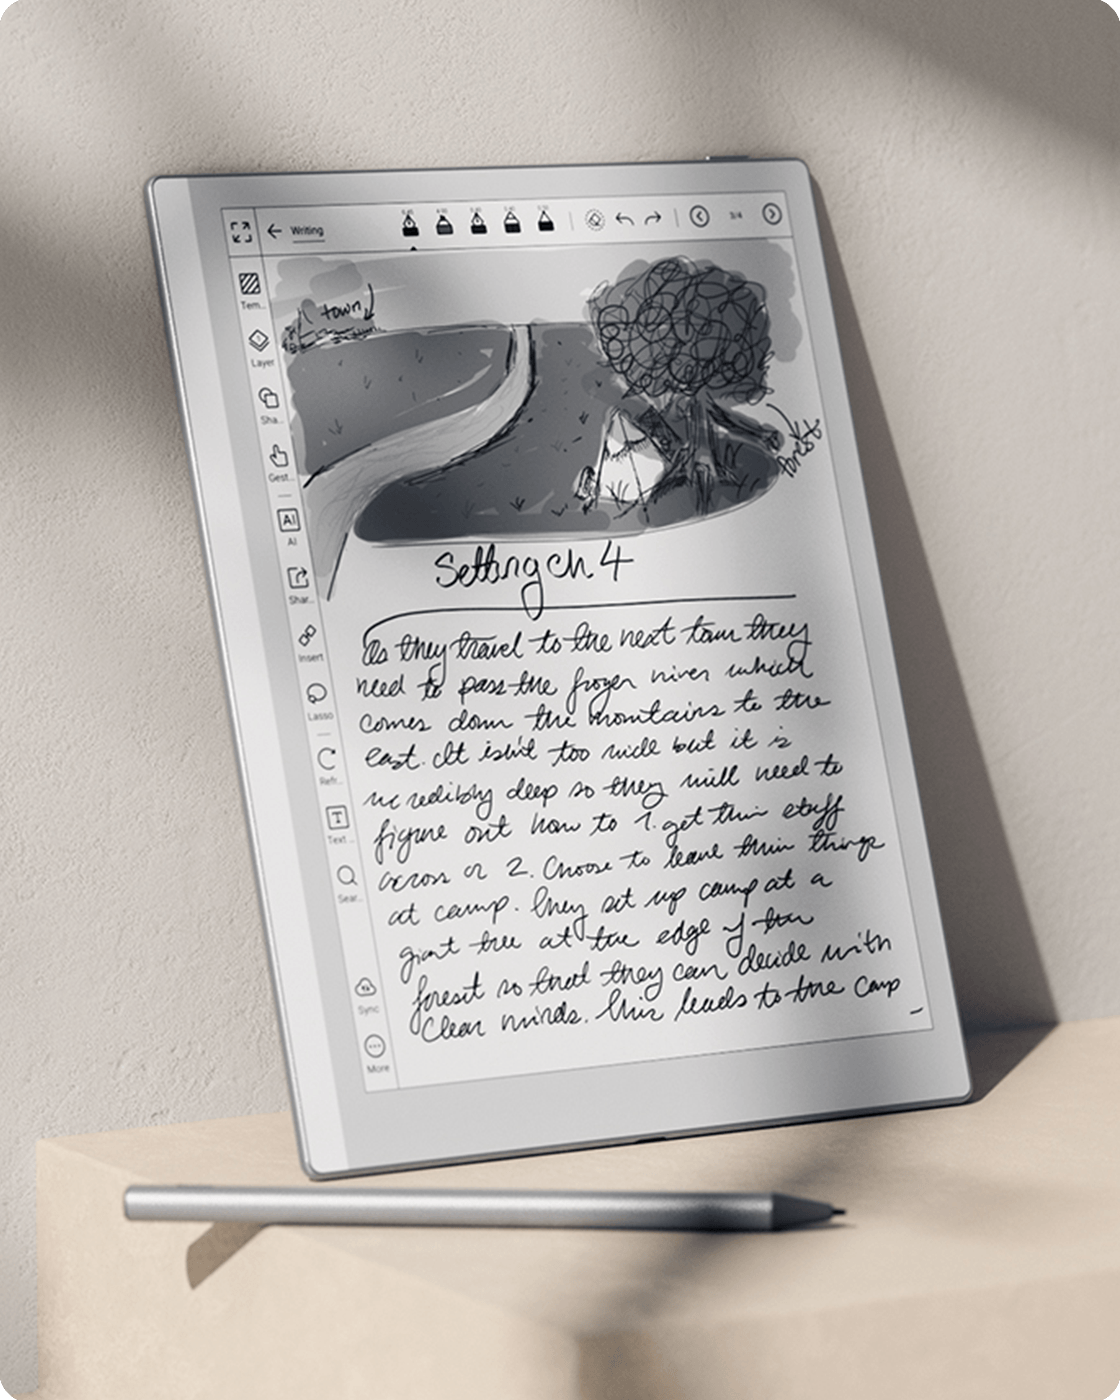 Writing
3/4
Tem...
Layer
Sha...
Gest...
AI
AI
Shar...
Insert
Lasso
Refr...
Text ...
Sear...
Sync
More
town
forest
Setting ch 4
As they travel to the next town they
need to pass the frozen river which
comes down the mountains to the
east. It isn't too wide but it is
incredibly deep so they will need to
figure out how to 1. get their stuff
across or 2. Choose to leave their things
at camp. They set up camp at a
giant tree at the edge of the
forest so that they can decide with
clear minds. This leads to the camp